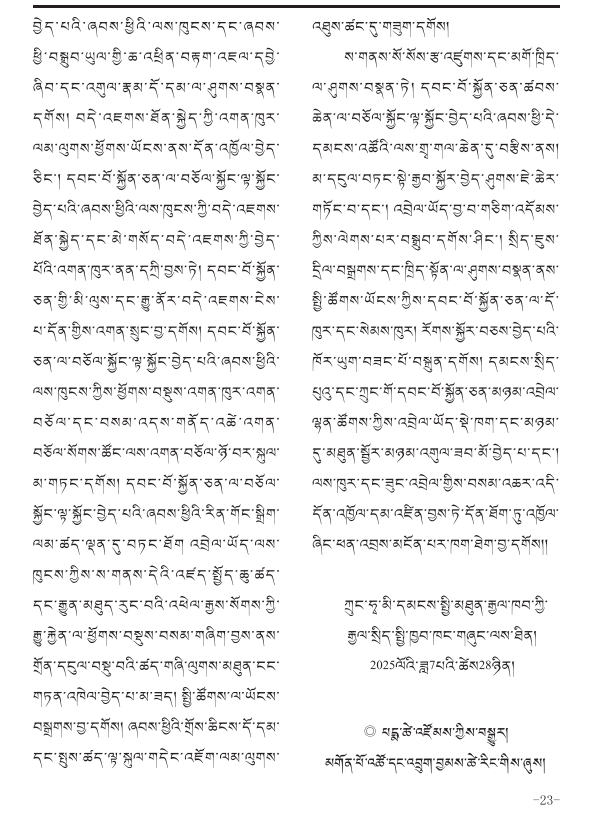 བྱེད་པའི་ཞབས་ཕྱིའི་ལས་ཁུངས་དང་ཞབས་
ཕྱི་བསྒྲུབ་ཡུལ་གྱི་ཆ་འཕྲིན་བརྟག་འཇལ་དབྱེ་
ཞིབ་དང་འགུལ་རྣམ་དོ་དམ་ལ་ཤུགས་བསྣན་
དགོས། བདེ་འཇགས་ཐོན་སྐྱེད་ཀྱི་འགན་ཁུར་
ལམ་ལུགས་ཕྱོགས་ཡོངས་ནས་དོན་འཁྱོལ་བྱེད་
ཅིང་། དབང་པོ་སྐྱོན་ཅན་ལ་བཅོལ་སྐྱོང་ལྟ་སྐྱོང་
བྱེད་པའི་ཞབས་ཕྱིའི་ལས་ཁུངས་ཀྱི་བདེ་འཇགས་
ཐོན་སྐྱེད་དང་མེ་གསོད་བདེ་འཇགས་ཀྱི་བྱེད་
པོའི་འགན་ཁུར་ནན་དཀྲི་བྱས་ཏེ། དབང་པོ་སྐྱོན་
ཅན་གྱི་མི་ལུས་དང་རྒྱུ་ནོར་བདེ་འཇགས་ངེས་
པ་དོན་གྱིས་འགན་སྲུང་བྱ་དགོས། དབང་པོ་སྐྱོན་
ཅན་ལ་བཅོལ་སྐྱོང་ལྟ་སྐྱོང་བྱེད་པའི་ཞབས་ཕྱིའི་
ལས་ཁུངས་ཀྱིས་ཕྱོགས་བསྡུས་འགན་ཁུར་འགན་
བཅོལ་དང་བསམ་འདས་གནོད་འཚེ་འགན་
བཅོལ་སོགས་ཚོང་ལས་འགན་བཅོལ་ཉོ་བར་སྐུལ་
མ་གཏང་དགོས། དབང་པོ་སྐྱོན་ཅན་ལ་བཅོལ་
སྐྱོང་ལྟ་སྐྱོང་བྱེད་པའི་ཞབས་ཕྱིའི་རིན་གོང་སྒྲིག་
ལམ་ཚད་ལྡན་དུ་བཏང་ཐོག འབྲེལ་ཡོད་ལས་
ཁུངས་ཀྱིས་ས་གནས་དེའི་འཛད་སྤྱོད་ཆུ་ཚད་
དང་རྒྱུན་མཐུད་རུང་བའི་འཕེལ་རྒྱས་སོགས་ཀྱི་
རྒྱུ་རྐྱེན་ལ་ཕྱོགས་བསྡུས་བསམ་གཞིག་བྱས་ནས་
གྲོན་དངུལ་བསྡུ་བའི་ཚད་གཞི་ལུགས་མཐུན་ངང་
གཏན་འཁེལ་བྱེད་པ་མ་ཟད། སྤྱི་ཚོགས་ལ་ཡོངས་
བསྒྲགས་བྱ་དགོས། ཞབས་ཕྱིའི་གྲོས་ཆིངས་དོ་དམ་
དང་སྤུས་ཚད་ལྟ་སྐུལ་གདེང་འཇོག་ལམ་ལུགས་
འཐུས་ཚང་དུ་གཟུག་དགོས།
ས་གནས་སོ་སོས་རྩ་འཛུགས་དང་མགོ་ཁྲིད་
ལ་ཤུགས་བསྣན་ཏེ། དབང་པོ་སྐྱོན་ཅན་ཚབས་
ཆེན་ལ་བཅོལ་སྐྱོང་ལྟ་སྐྱོང་བྱེད་པའི་ཞབས་ཕྱི་དེ་
དམངས་འཚོའི་ལས་གྲྭ་གལ་ཆེན་དུ་བརྩིས་ནས།
མ་དངུལ་བཏང་སྟེ་རྒྱབ་སྐྱོར་བྱེད་ཤུགས་ཇེ་ཆེར་
གཏོང་བ་དང་། འབྲེལ་ཡོད་བྱ་བ་གཅིག་འདོམས་
ཀྱིས་ལེགས་པར་བསྒྲུབ་དགོས་ཤིང་། སྲིད་ཇུས་
དྲིལ་བསྒྲགས་དང་ཁྲིད་སྟོན་ལ་ཤུགས་བསྣན་ནས་
སྤྱི་ཚོགས་ཡོངས་ཀྱིས་དབང་པོ་སྐྱོན་ཅན་ལ་དོ་
ཁུར་དང་སེམས་ཁུར། རོགས་སྐྱོར་བཅས་བྱེད་པའི་
ཁོར་ཡུག་བཟང་པོ་བསྐྲུན་དགོས། དམངས་སྲིད་
པུའུ་དང་ཀྲུང་གོ་དབང་པོ་སྐྱོན་ཅན་མཉམ་འབྲེལ་
ལྷན་ཚོགས་ཀྱིས་འབྲེལ་ཡོད་སྡེ་ཁག་དང་མཉམ་
དུ་མཐུན་སྦྱོར་མཉམ་འགུལ་ཟབ་མོ་བྱེད་པ་དང་།
ལས་ཁུར་དང་ཟུང་འབྲེལ་གྱིས་བསམ་འཆར་འདི་
དོན་འཁྱོལ་དམ་འཛིན་བྱས་ཏེ་དོན་ཐོག་ཏུ་འཁྱོལ་
ཞིང་ཕན་འབྲས་མངོན་པར་ཁག་ཐེག་བྱ་དགོས།།
ཀྲུང་ཧྭ་མི་དམངས་སྤྱི་མཐུན་རྒྱལ་ཁབ་ཀྱི་
རྒྱལ་སྲིད་སྤྱི་ཁྱབ་ཁང་གཞུང་ལས་ཐིན།
2025ལོའི་ཟླ7པའི་ཚེས28ཉིན།
◎ པདྨ་ཚེ་འཛོམས་ཀྱིས་བསྒྱུར།
མགོན་པོ་འཚོ་དང་འབྲུག་བྱམས་ཚེ་རིང་གིས་ཞུས།
-23-